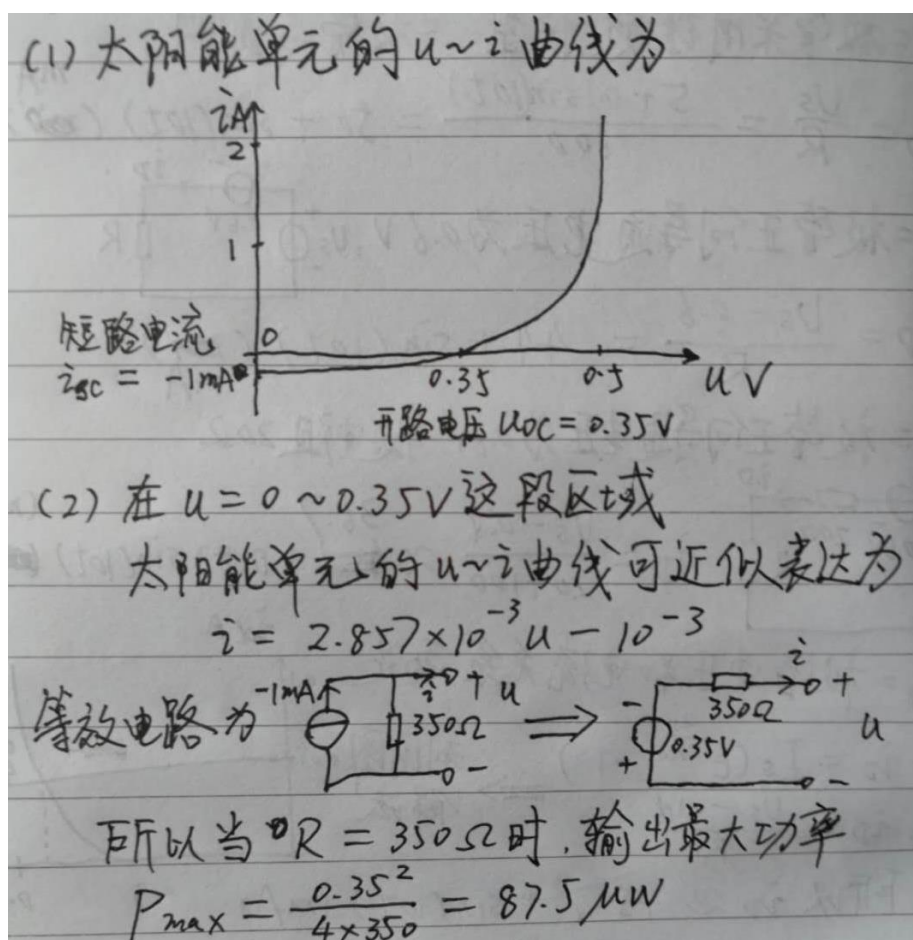 (1) 太阳能单元的u~i曲线为
iA
2
1
0
短路电流
isc = -1mA
0.35
0.5
u V
开路电压 uoc = 0.35V
(2) 在 u = 0 ~ 0.35V 这段区域
太阳能单元的u~i曲线可近似表达为
i = 2.857×10⁻³u - 10⁻³
等效电路为 -1mA i + u 350Ω - ⇒ - 0.35V + 350Ω i + u -
所以当 R = 350Ω时, 输出最大功率
Pmax = 0.35²/4×350 = 87.5 μW